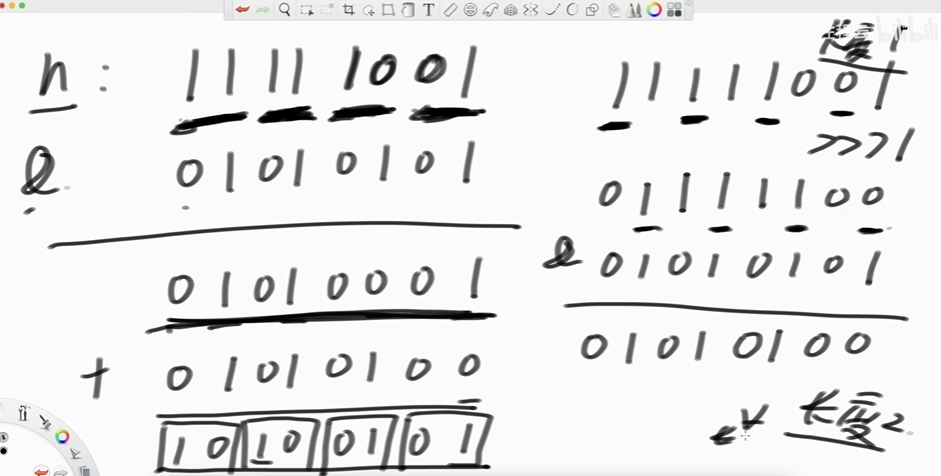 n: 11111001
& 01010101
01010001
+ 01010100
10 10 01 01
长度1
11111001
>>>1
01111100
& 01010101
01010100
长度2
bilibili